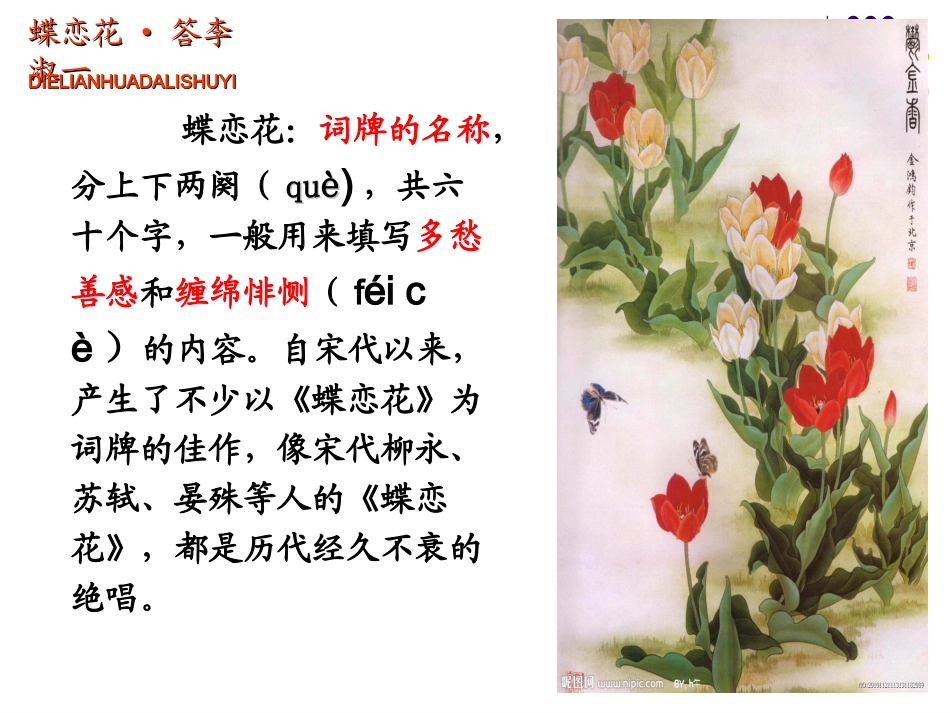 蝶恋花 · 答李
淑一
DIELIANHUADALISHUYI
蝶恋花：词牌的名称，
分上下两阕（ què），共六
十个字，一般用来填写多愁
善感和缠绵悱恻（ féi c
è ）的内容。自宋代以来，
产生了不少以《蝶恋花》为
词牌的佳作，像宋代柳永、
苏轼、晏殊等人的《蝶恋
花》，都是历代经久不衰的
绝唱。
金鸿钧作于北京
昵图网 www.nipic.com BY:ㄣ午